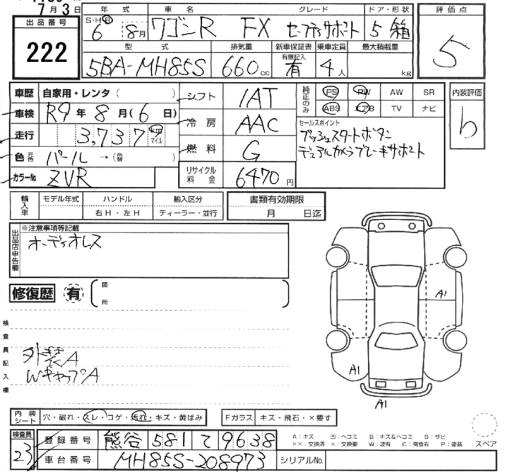 7月3日
出品番号
222
年式 車名 グレード ドア・形状
S・H 6年 8月 ワゴンR FX セーフティサポート 5 箱
型式 排気量 新車保証書 乗車定員 最大積載量
5BA-MH85S 660cc 有無記入 有 4人 kg
評価点
5
車歴 自家用・レンタ( )
車検 R9年 8月(6日)
走行 3,737 km マイル
色 元色 パール →(替 )
カラーNo ZVR
シフト IAT
冷房 AAC
燃料 G
リサイクル料金 6470円
純正のみ PS PW AW SR
ABS エアB TV ナビ
セールスポイント
プッシュスタートボタン
デュアルカメラブレーキサポート
内装評価
b
輸入車 モデル年式 ハンドル 輸入区分
年 右H・左H ディーラー・並行
書類有効期限
月 日迄
出品店申告欄
※注意事項等記載
オーディオレス
修復歴 有
図所
検査員記入欄
外装A
WキャップA
A1
A1
A1
内装シート 穴・破れ・スレ・コゲ・汚れ・キズ・黄ばみ
Fガラス キズ・飛石・×要す
A:キズ U:ヘコミ B:キズ&ヘコミ S:サビ
××:交換済 X:要交換 W:波有 C:腐食有 P:塗装
スペア
検査員
23
登録番号 熊谷 581 て 9638
車台番号 MH85S-208973
シリアルNo.